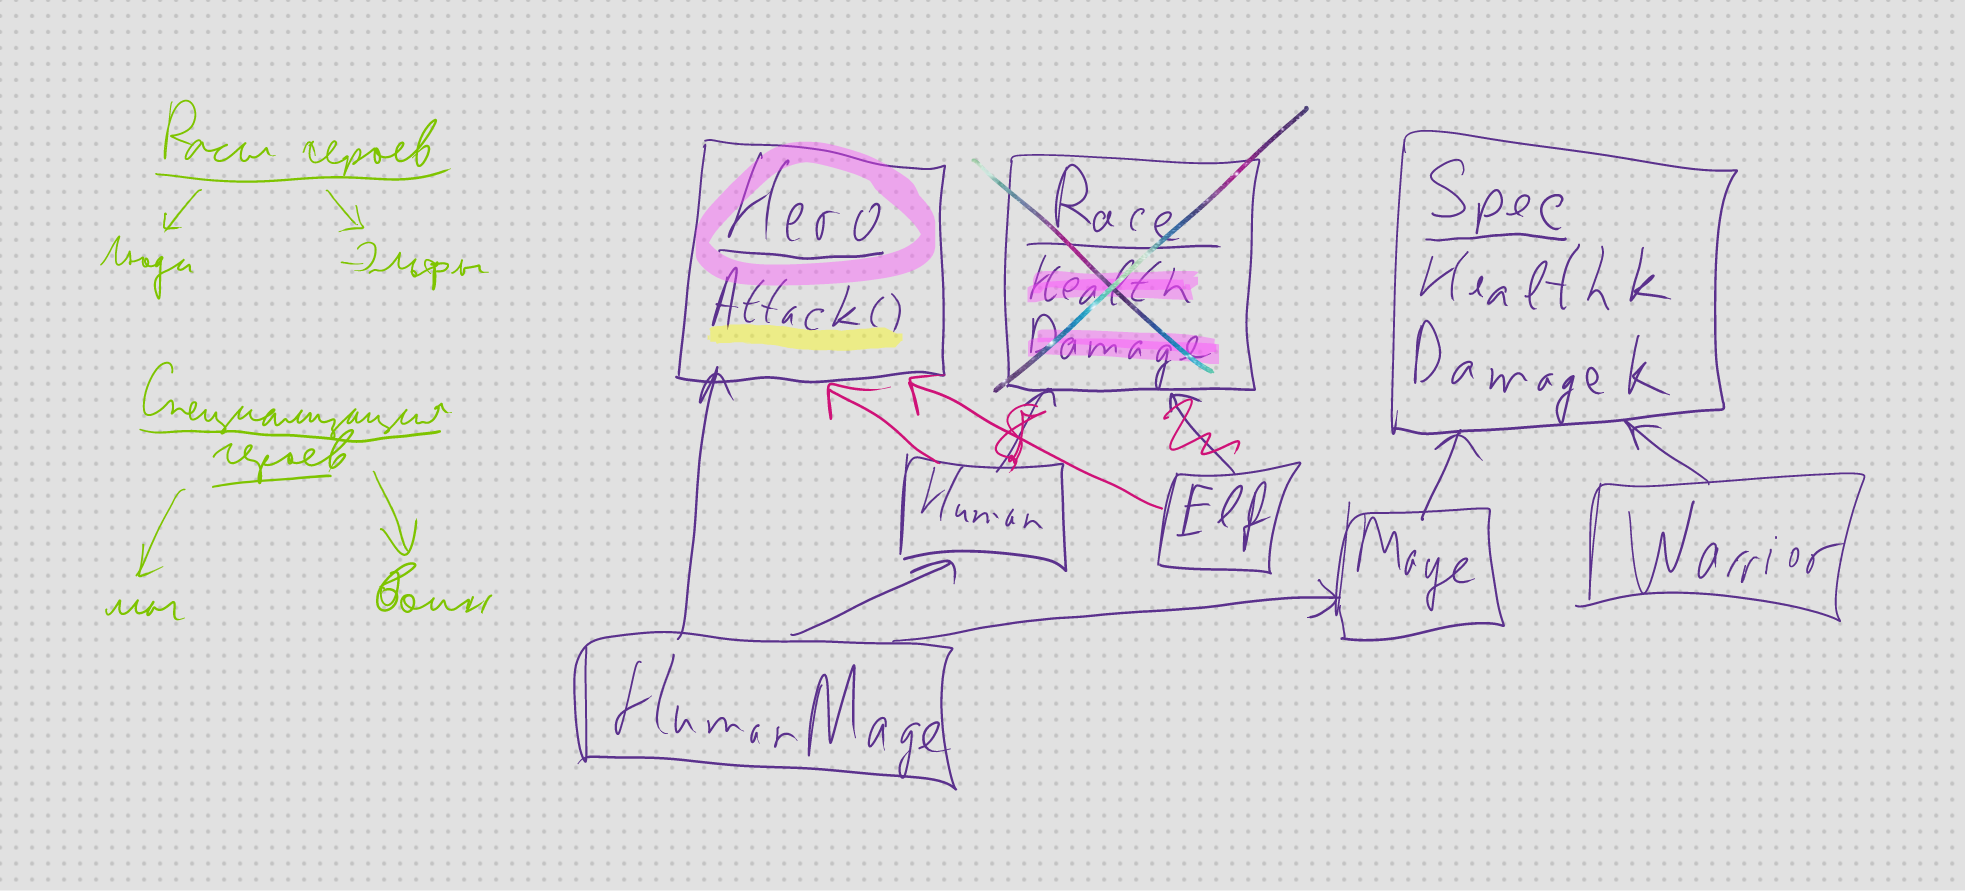 Расы героев
Люди
Эльфы
Специализация
героев
маг
Воин
Hero
Attack()
Race
Health
Damage
Spec
Health k
Damage k
Human
Elf
Mage
Warrior
HumanMage